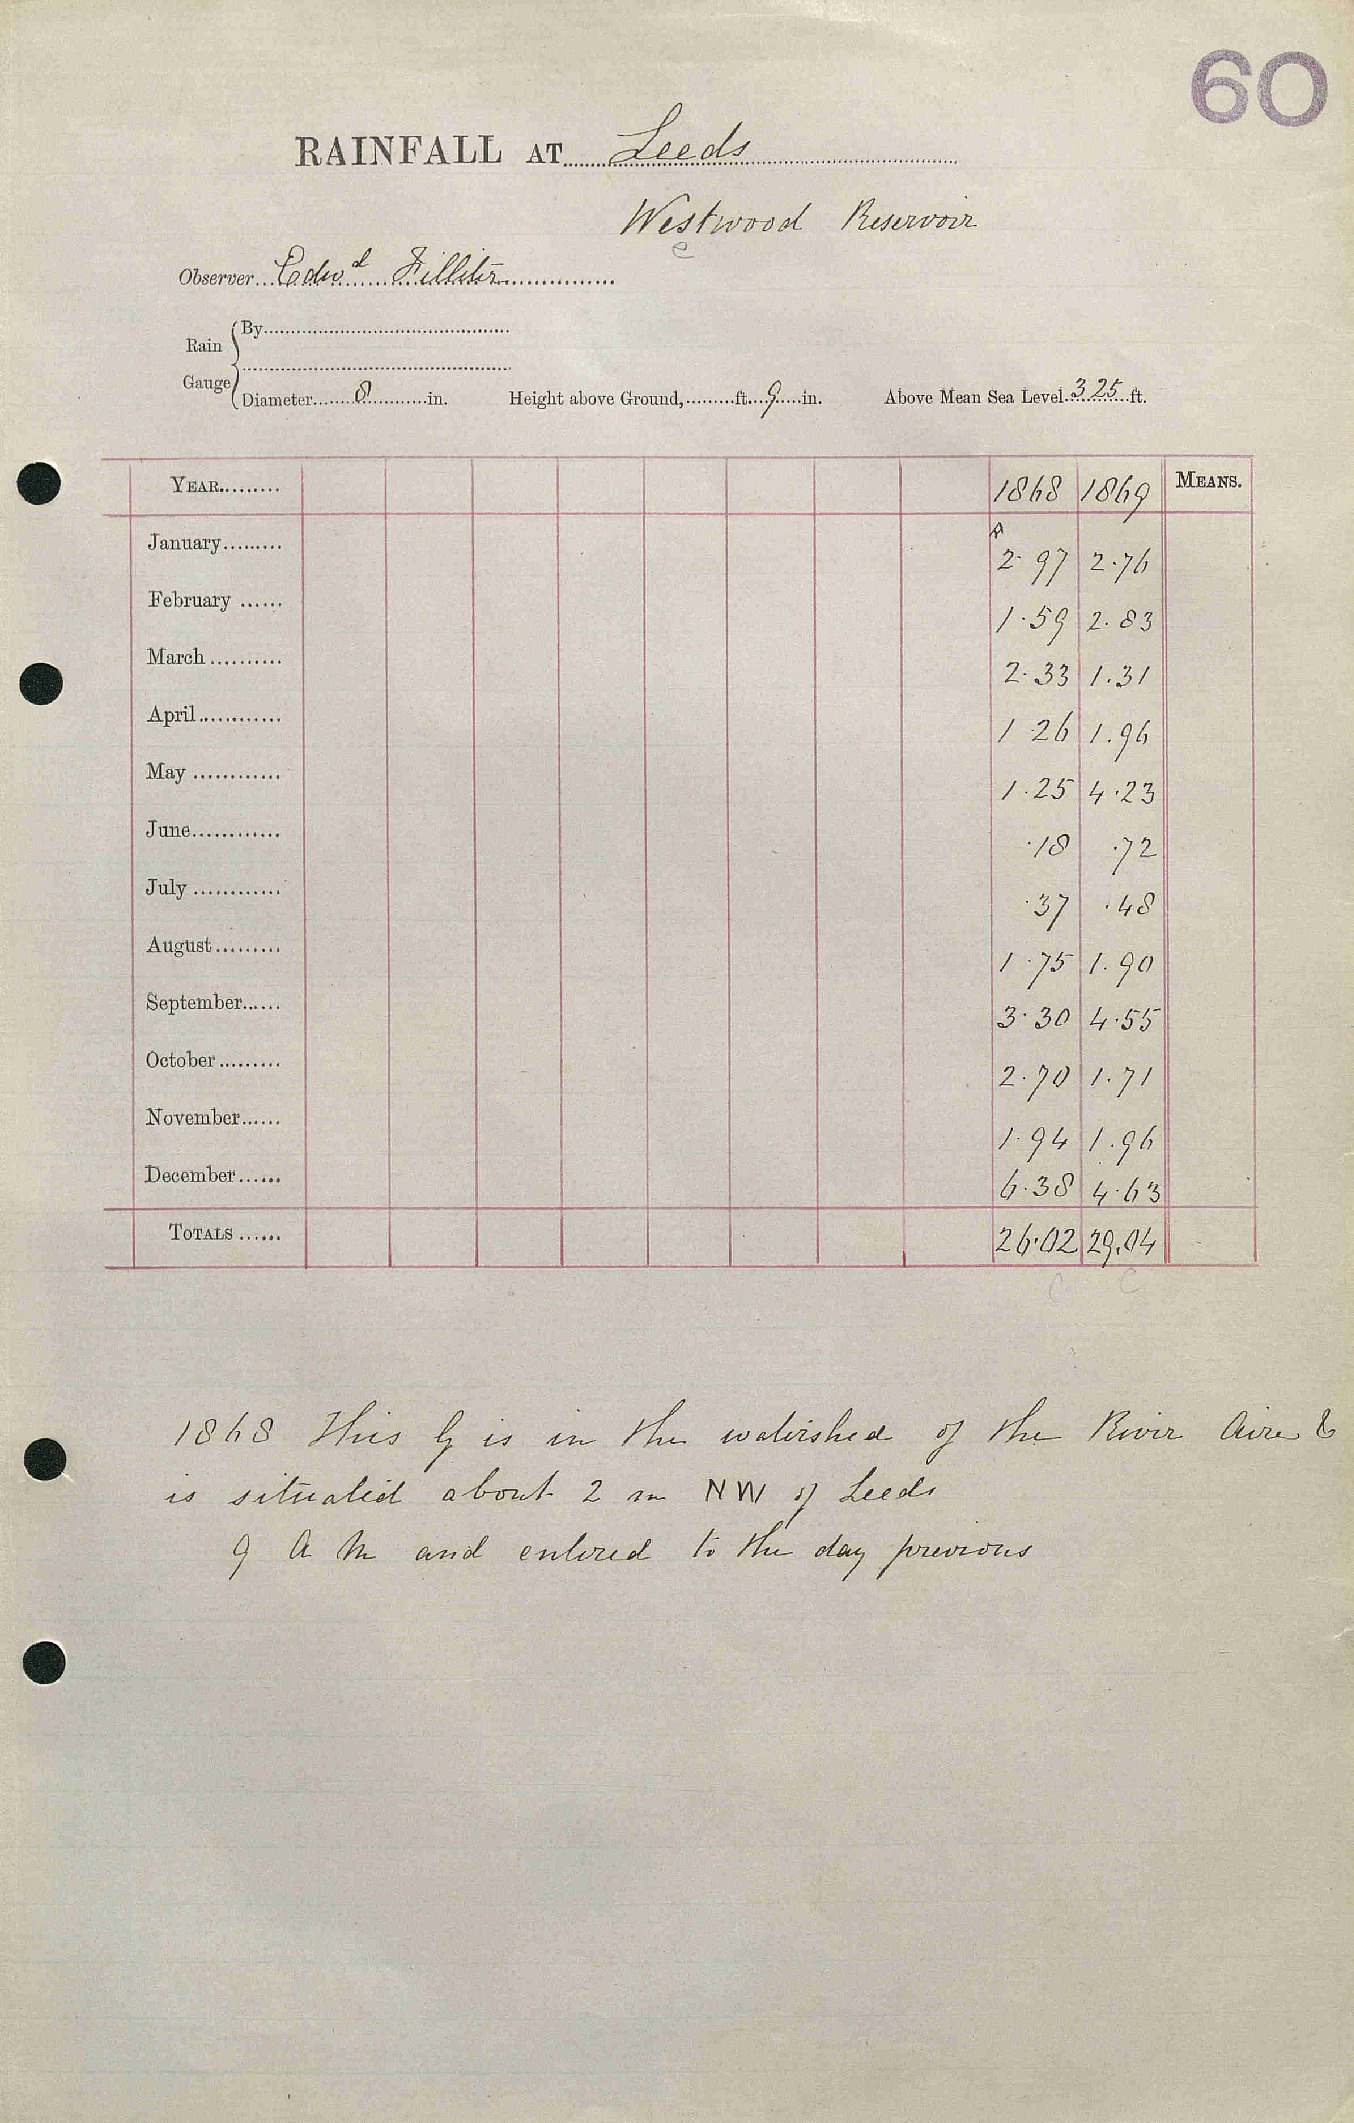 60
RAINFALL AT Leeds
Westwood Reservoir
e
Observer Edwd Filliter
Rain Gauge
By
Diameter 8 in. Height above Ground, ft. 9 in. Above Mean Sea Level 325 ft.
YEAR 1868 1869 MEANS.
January 2.97 2.76
February 1.59 2.83
March 2.33 1.31
April 1 26 1.96
May 1.25 4.23
June .18 .72
July .37 .48
August 1.75 1.90
September 3.30 4.55
October 2.70 1.71
November 1.94 1.96
December 6.38 4.63
TOTALS 26.02 29.04
c c
1868 This G is in the watershed of the River Aire &
is situated about 2 m NW of Leeds
9 A M and entered to the day previous